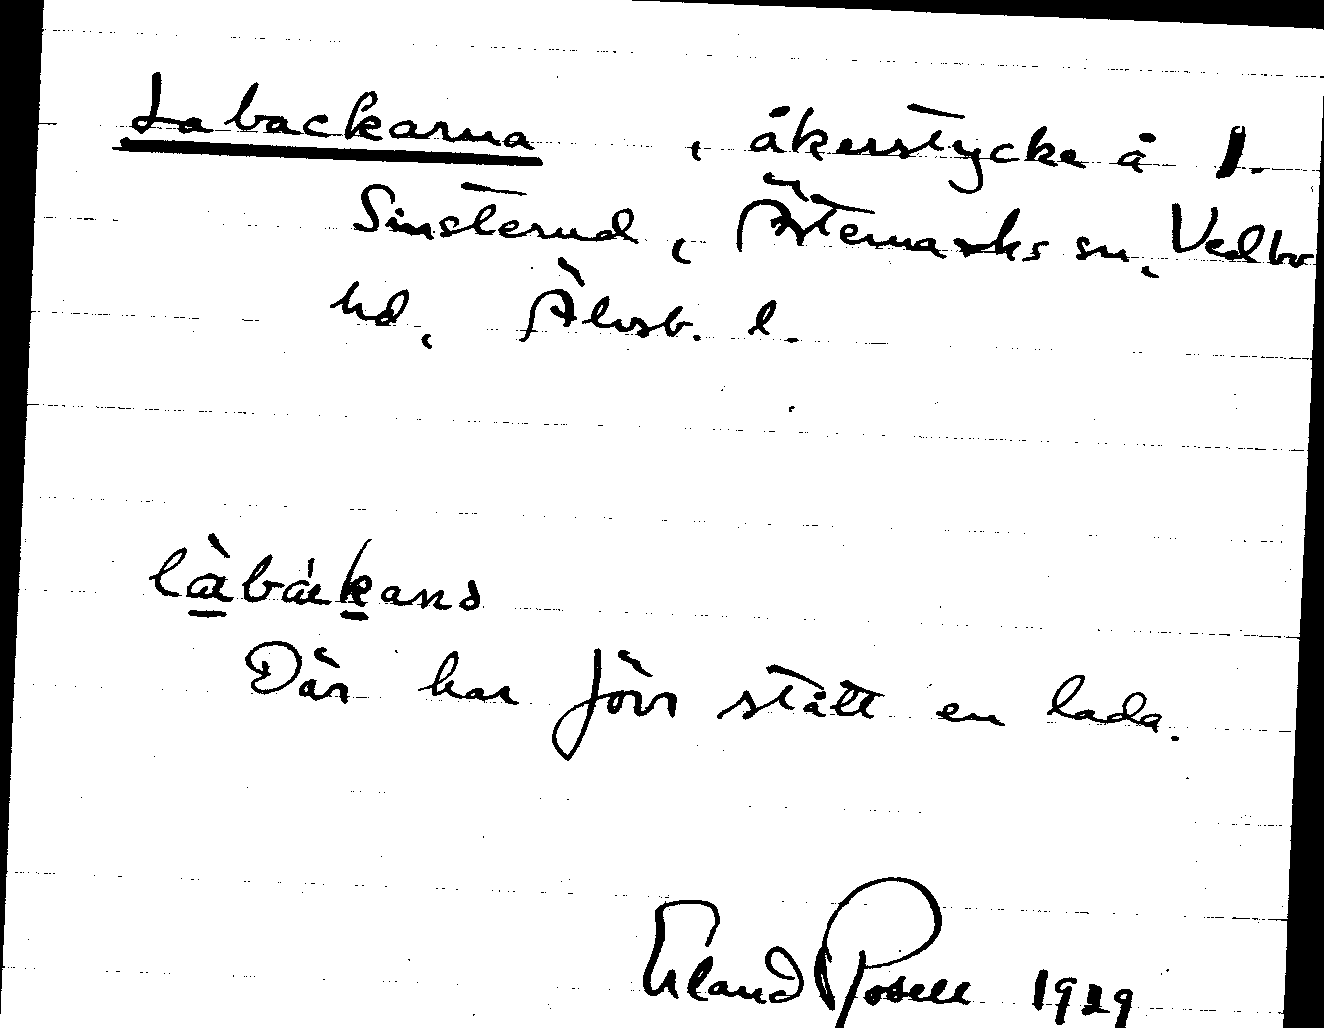 Labackarna , åkerstycke å 1.
Sinsterud , Ärtemarks sn, Vedbo
hd, Älvsb. l.
là̱báḵanɔ
Där har förr stått en lada.
Erland Rosell 1929